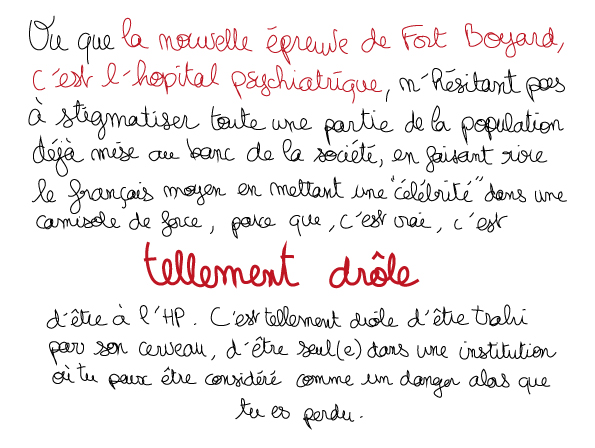 Vu que la nouvelle épreuve de Fort Boyard,
c'est l'hopital psychiatrique, n'hésitant pas
à stigmatiser toute une partie de la population
déjà mise au banc de la société, en faisant rire
le français moyen en mettant une "célébrité" dans une
camisole de force, parce que, c'est vrai, c'est
tellement drôle
d'être à l'HP. C'est tellement drôle d'être trahi
par son cerveau, d'être seul(e) dans une institution
où tu peux être considéré comme un danger alors que
tu es perdu.